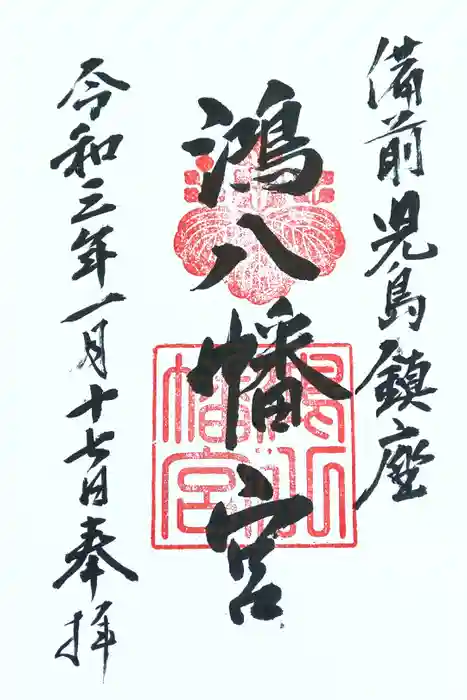 備前児島鎮座
鴻八幡宮
令和三年一月十七日奉拝
鴻八幡宮